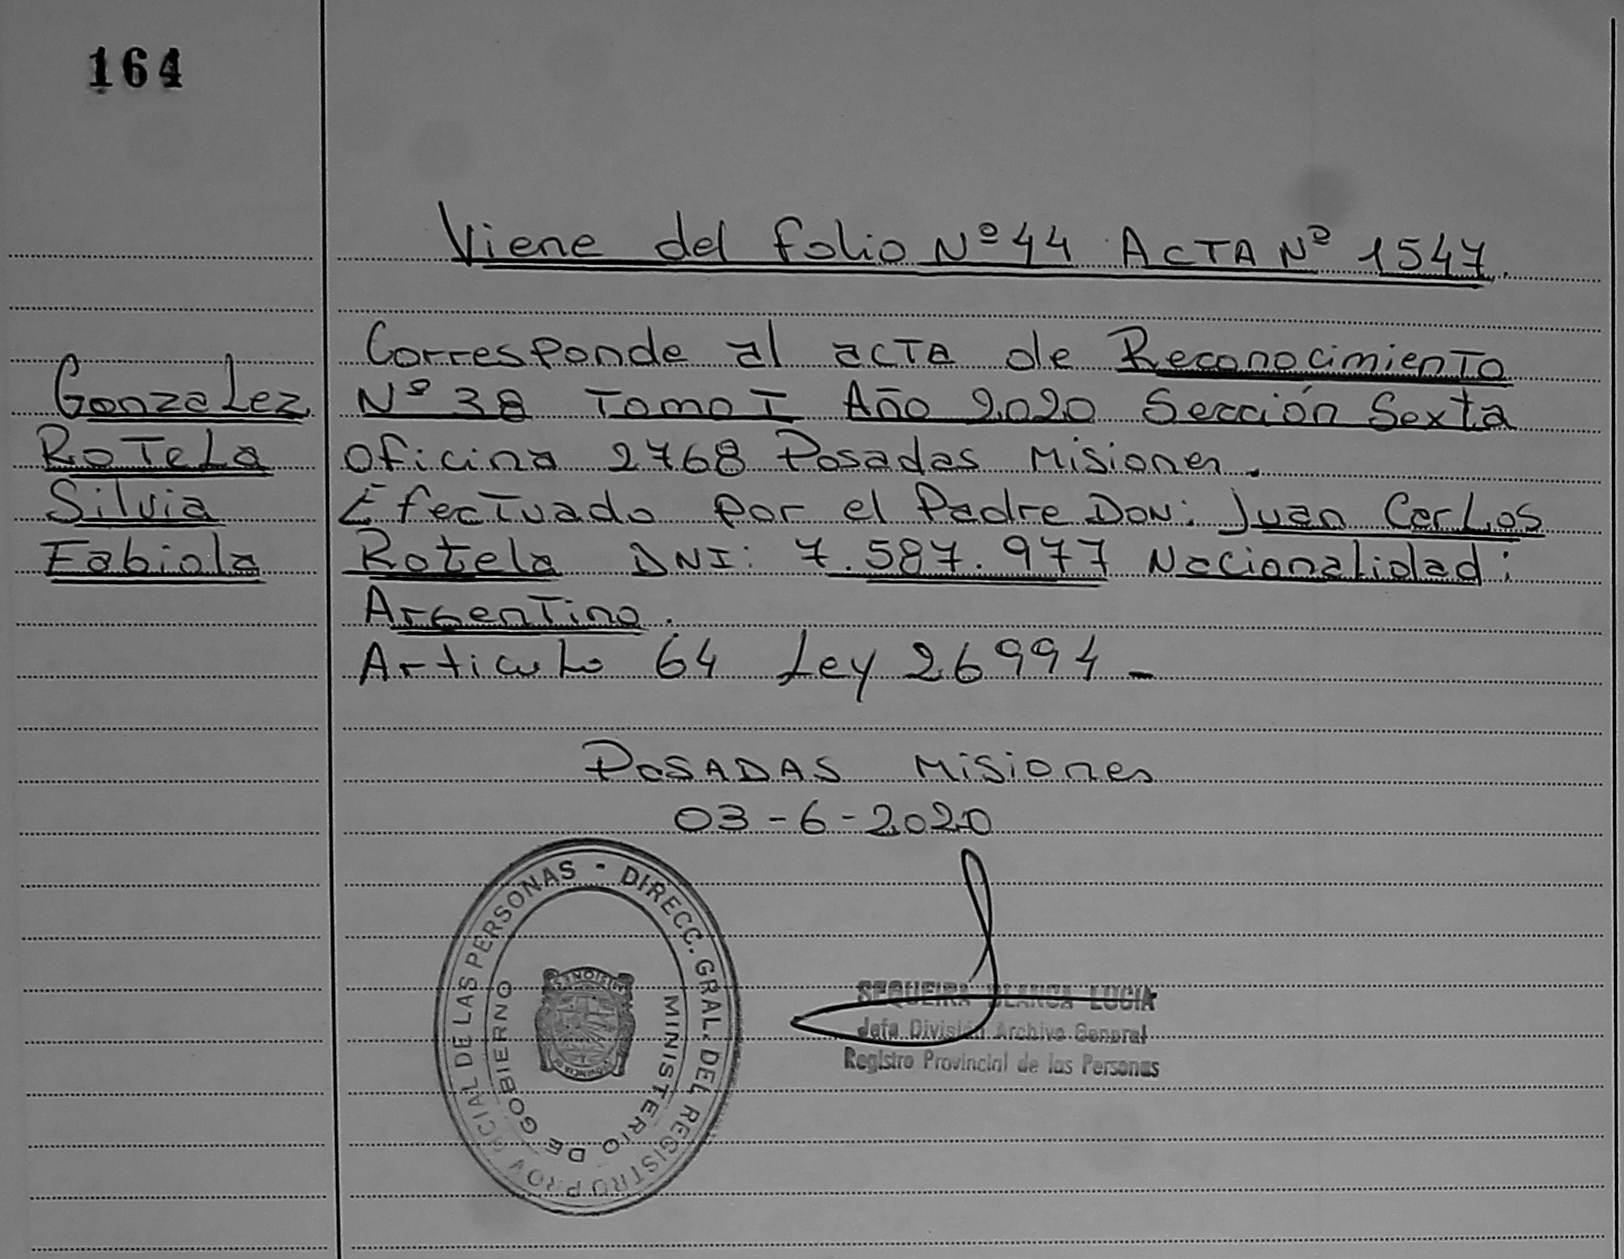 164
Viene del folio Nº 44 ACTA Nº 1547.
Gonzalez
Rotela
Silvia
Fabiola
Corresponde al acta de Reconocimiento
Nº 38 Tomo I Año 2020 Sección Sexta
Oficina 2768 Posadas Misiones.
Efectuado por el Padre Don: Juan Carlos
Rotela DNI: 7.587.977 Nacionalidad:
Argentino.
Articulo 64 Ley 26994-
POSADAS Misiones
03-6-2020
DIRECC. GRAL. DEL REGISTRO PROVINCIAL DE LAS PERSONAS -
MINISTERIO DE GOBIERNO
SEQUEIRA BLANCA LUCIA
Jefa División Archivo General
Registro Provincial de las Personas